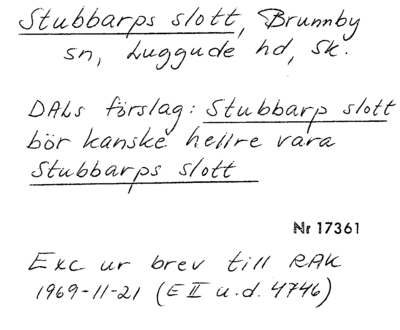 Stubbarps slott, Brunnby
sn, Luggude hd, Sk.
DALs förslag: Stubbarp slott
bör kanske hellre vara
Stubbarps slott
Nr 17361
Exc ur brev till RAK
1969-11-21 (E II u.d. 4746)